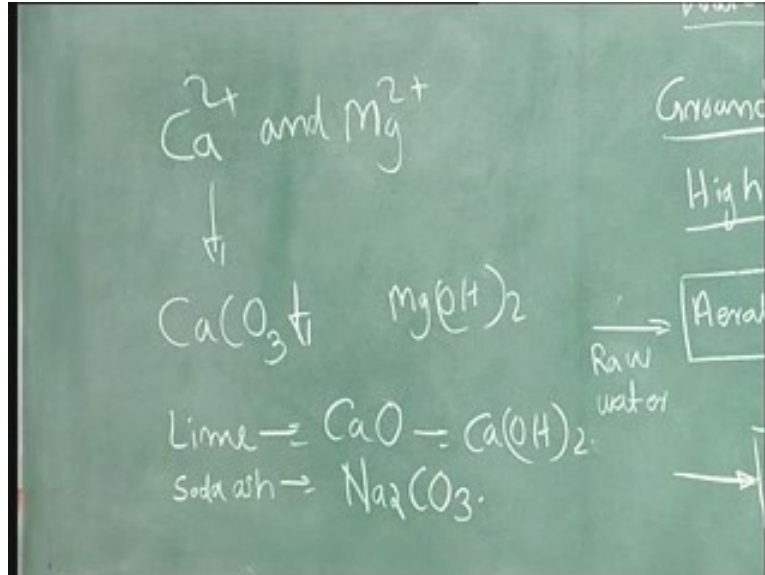 Ca²⁺ and Mg²⁺
↓
CaCO₃↓ Mg(OH)₂
Lime → CaO – Ca(OH)₂.
Soda ash → Na₂CO₃.
High
Raw
water